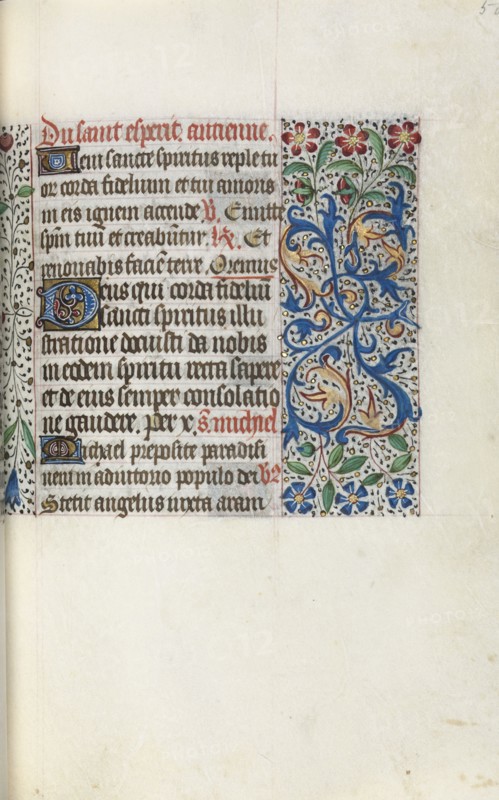 Du saint esperit. antienne.
Veni sancte spiritus reple tu
or corda fidelium et tui amoris
in eis ignem accende V. Emitte
spm tuu et creabutur. R. Et
renovabis facie terre. Oremus
Deus qui corda fideliu
sancti spiritus illu
stratione docuisti da nobis
in eodem spiritu recta sapere
et de eius semper consolatio
ne gaudere. per x. S. michael
Michael preposite paradisi
veni in adiutorio populo dei V
Stetit angelus iuxta aram